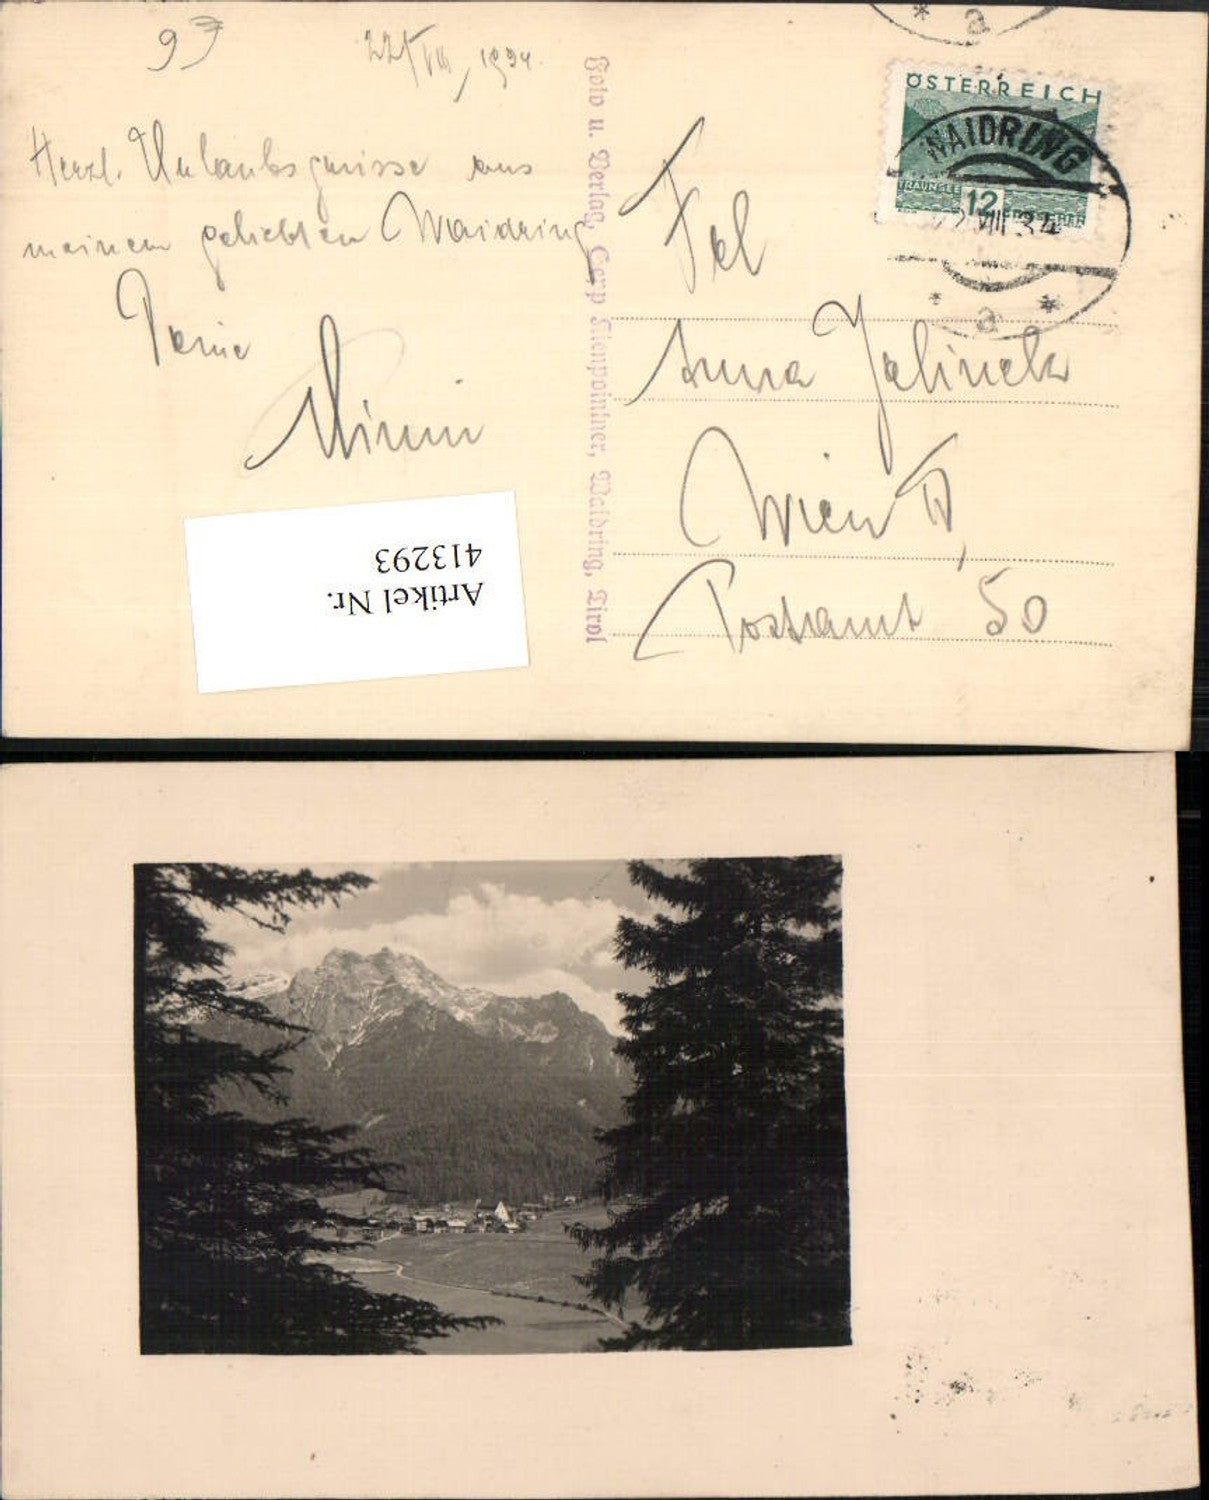 93
22/VII, 1934.
Herzl. Urlaubsgrüsse aus
meinem geliebten Waidring
Deine
Minni
Foto u. Verlag, Georg Kienpointner, Waidring, Tirol
ÖSTERREICH
TRAUNSEE 12 GROSCHEN
WAIDRING
VII 34
* a *
* a
Frl
Anna Jelinek
Wien
Postamt 50
Artikel Nr.
413293